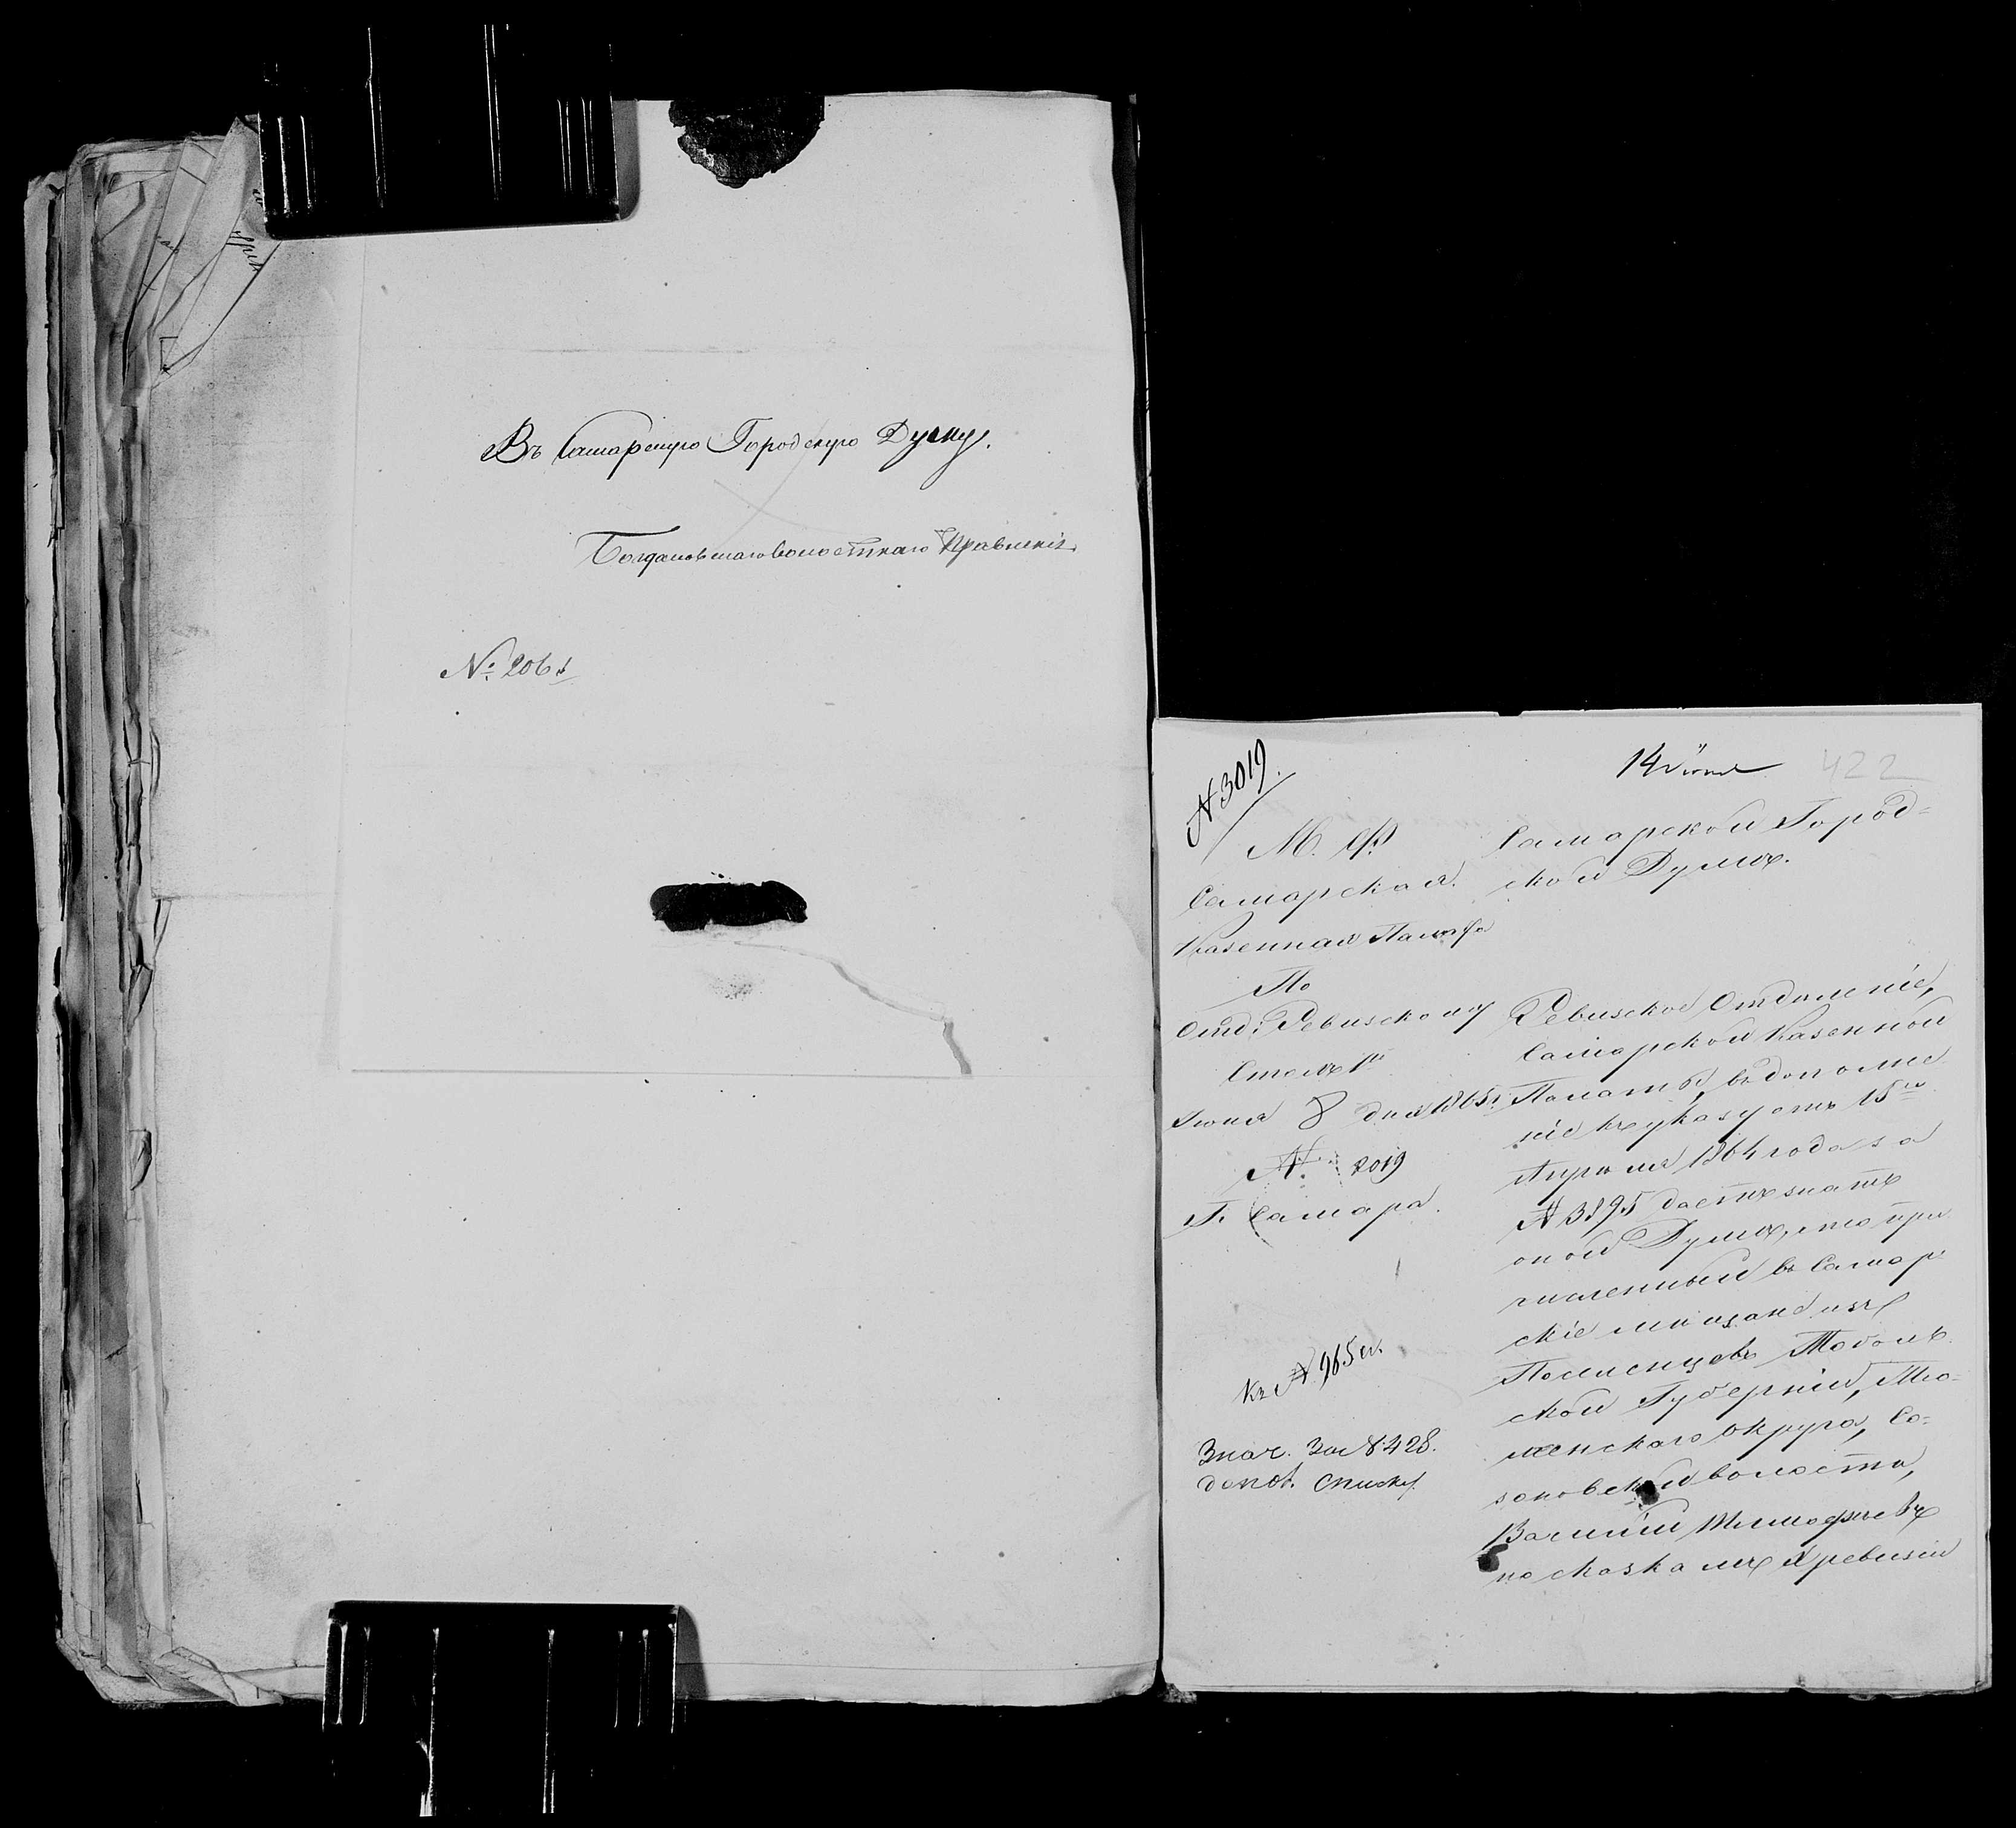 Въ Самарскую Городскую Думу.
Богдановскаго Волостнаго Правленія
№ 2061
№ 3019.
14 Іюня
422
М. Ф.
Самарская
Казенная Палата
По
Отд: Ревизскому
Столъ 1й
Іюня 8 дня 1865 г.
№ 2019
Г. Самара.
Къ № 965
Знач. за № 428.
допол. списку
Самарской Город-
ской Думѣ.
Ревизское Отдѣленіе,
Самарской Казенной
Палаты, въ дополне
ніе къ указу отъ 15го
Апрѣля 1864 года за
№ 3895 даетъ знать
оной Думѣ, что при
численный въ Самар
скіе мѣщане изъ
Поселенцевъ Тоболь
ской Губерніи, Тю-
менскаго округа, Со-
зоновской волости,
Василій Тимофѣевъ
по сказкамъ X ревизіи